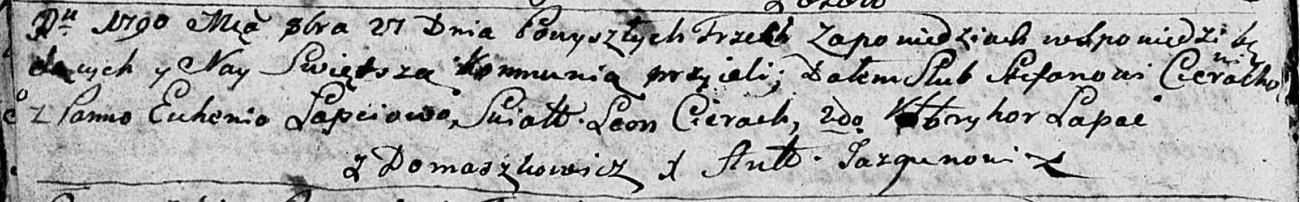 Rᵘ 1790 Mca 8bra 27 Dnia Powyszłych Trzech Zapowiedziach w Spowiedzi bę
dących y Nay Swiętszą Kommunią przyieli; Dałem Slub Stefanowi Cieracho
wi z Panno Euhenio Łapciowo, Swiatt. Leon Cierach, 2do Hryhor Łapać
z Domaszkowicz X Antt. Jazgunowicz